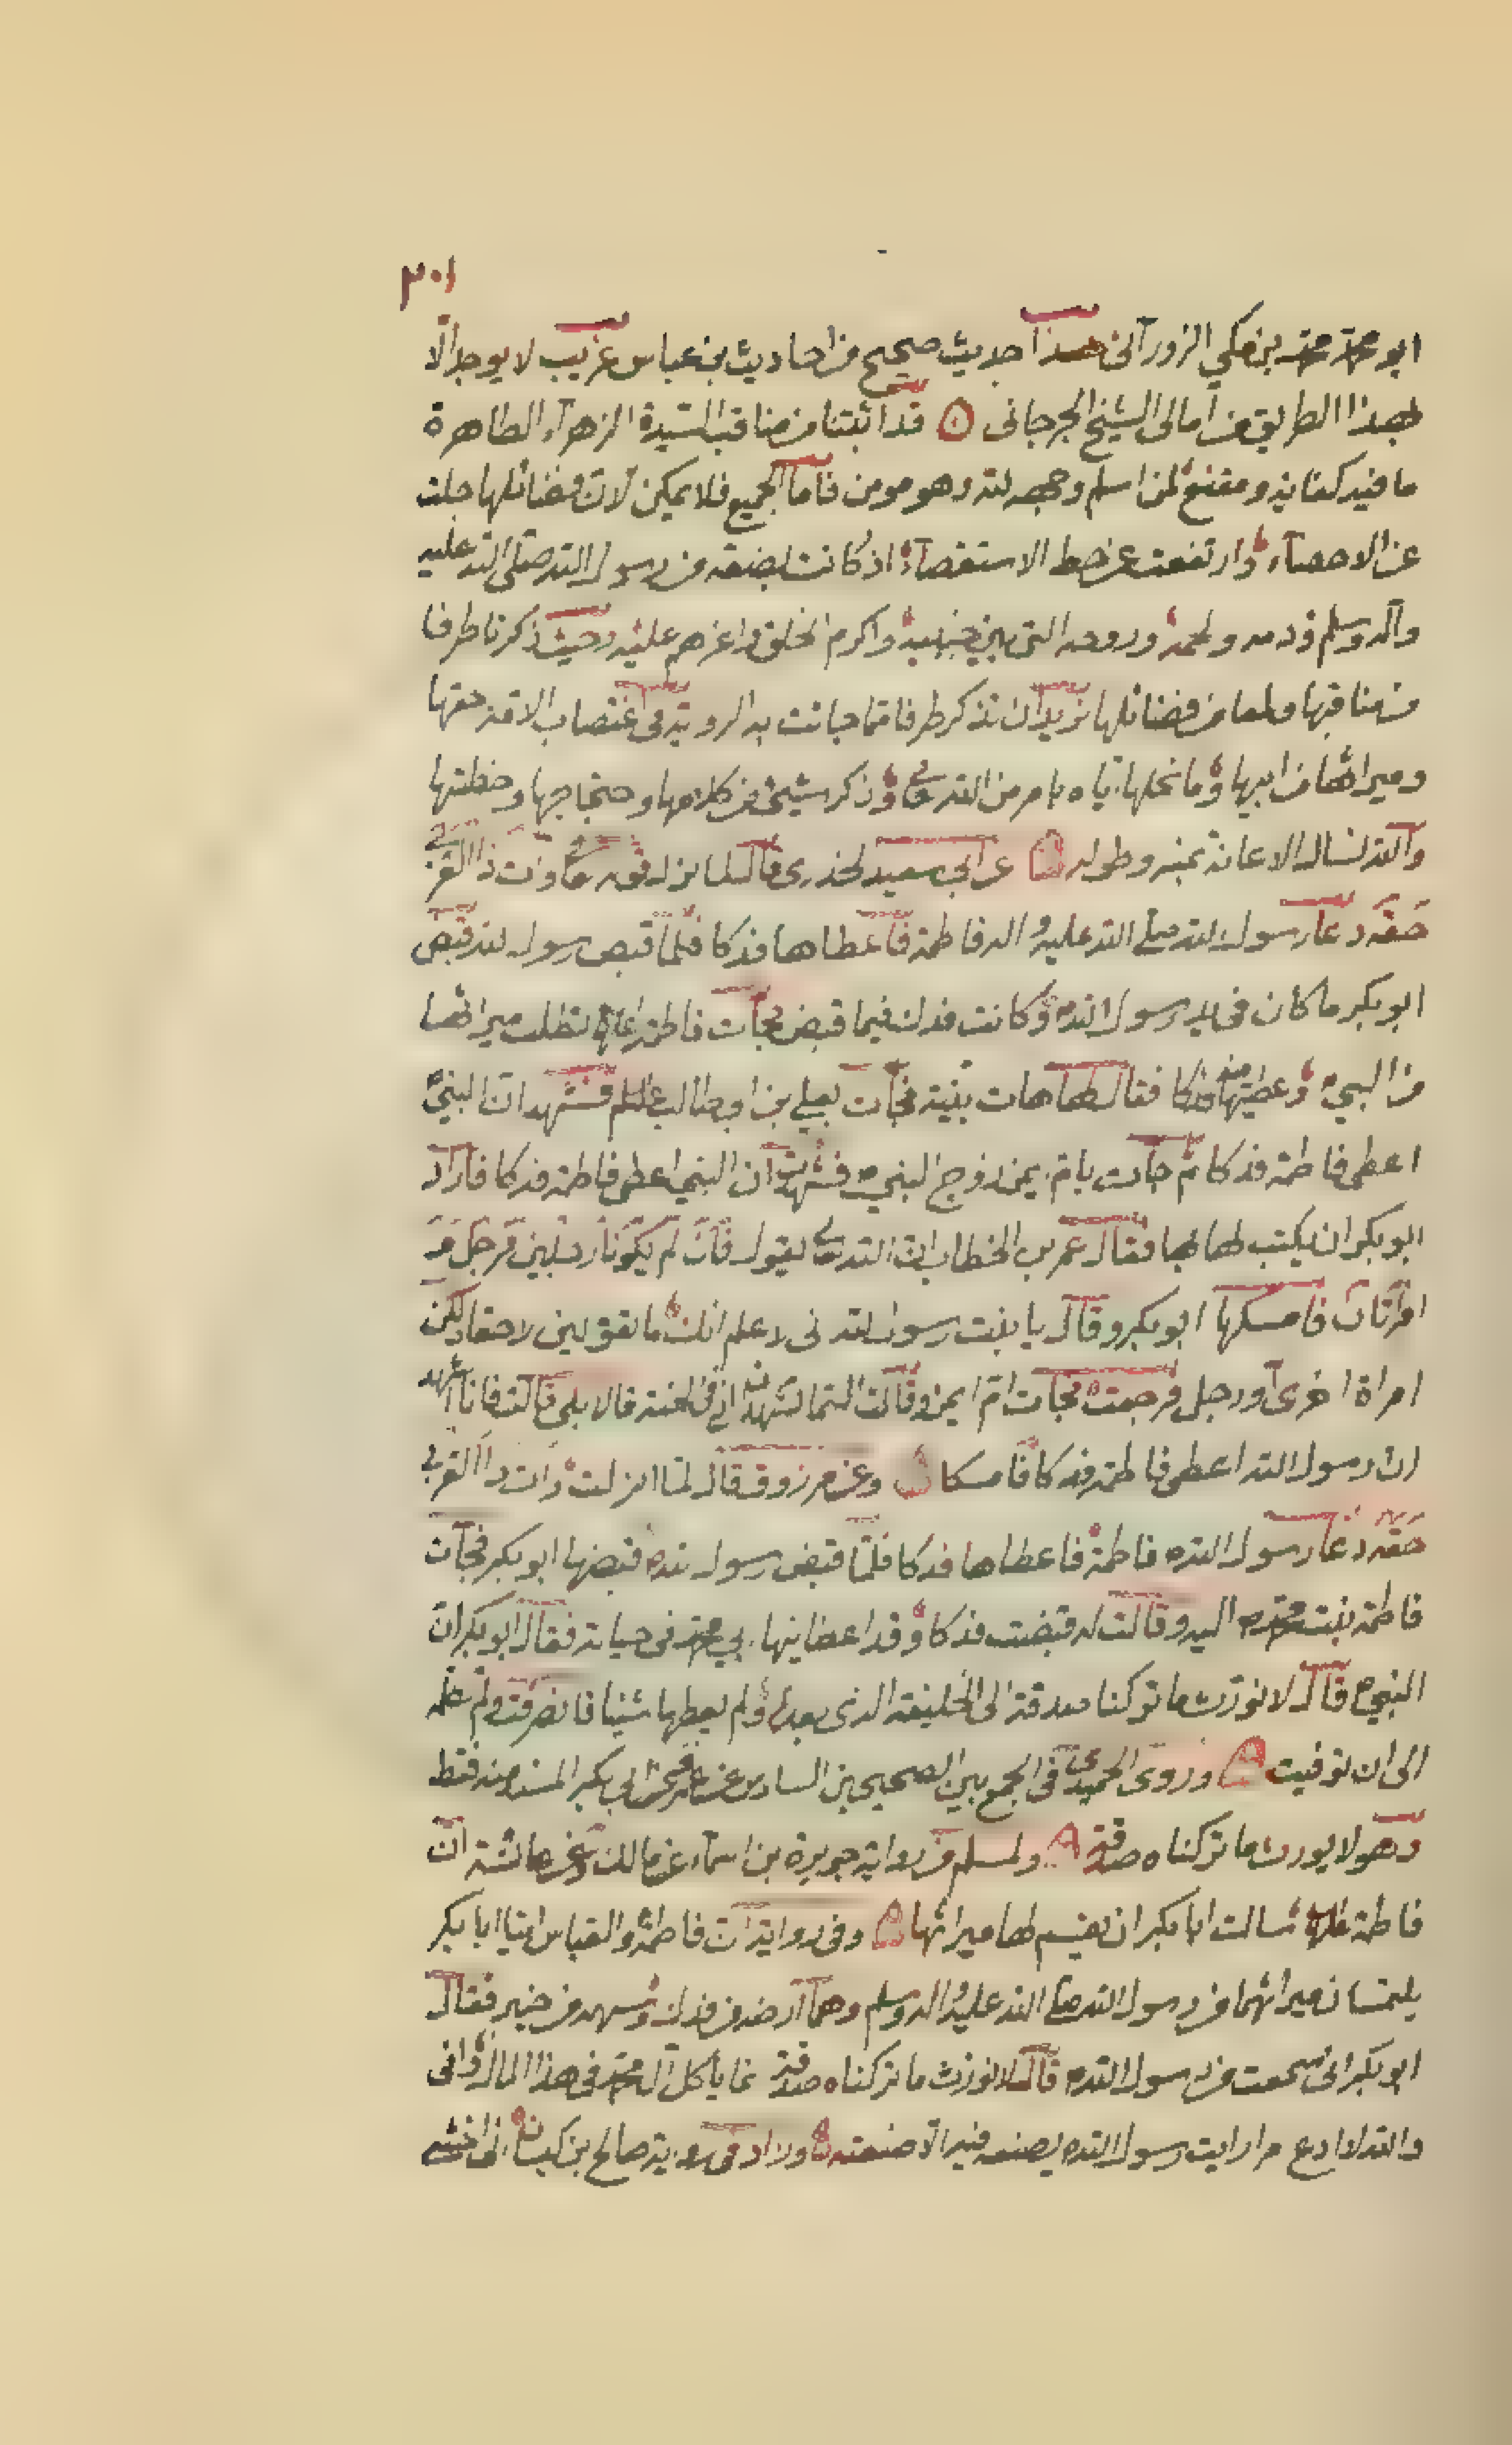 ٣٠١
ابو محمد محمد بن مكي الزورآنى هذا حديث صحيح من احاديث بن عباس غريب لا يوجد الّا
بهذا الطريق من امالى الشيخ الجرجانى قد اثبتنا من مناقب السّيدة الزهرآء الطاهرة
ما فيه كفاية ومقنع لمن اسلم وجهه لله وهو مومن فامّا الجميع فلا يمكن لانّ فضائلها جلت
عن الاحصآء وارتفعت عن خط الاستقصآء اذ كانت بضعه من رسول الله صلّى الله عليه
وآله وسلم ودمه ولحمه وروحه التى بين جنبيه واكرم الخلق واعزهم عليه وحيث ذكرنا طرفا
من مناقبها ولمعا من فضائلها نريد ان نذكر طرفا ممّا جائت به الروية فى اغتصاب الامّة حقها
وميراثها من ابيها وما نحلها ايّاه بامر من الله تعا وذكر شيئ من كلامها وحتجاجها وخطبتها
والله نسال الاعانة بمنه وطوله عن ابى سعيد لخدرى قال لما نزل قوله تعا وات ذا القربى
حقه دعا رسول الله صلى الله عليه واله فاطمة فاعطاها فدكا فلمّا قبض رسول لله قبض
ابو بكر ما كان فى يد رسول الله ص وكانت فدك فيما قبض فجآت فاطمة تطلب ميراثها
من النبى وعطيتها فدكا فقال لها هات بيّنة فجآت بعلى بن ابى طالب فشهد انّ النبىّ
اعطى فاطمة فدكا ثم جآت بام ايمن زوج النبى ص فشهدت ان النبى اعطى فاطمة فدكا فاراد
ابو بكر ان يكتب لها بها فقال عمر بن الخطاب انّ الله تعا يقول فان لم يكونا رجلين فرجل و
امرأتان فامسكها ابو بكر وقال يا بنت رسول لله نى لا علم انك ما تقولين لا حقا ولكن
امراة اخرى او رجل فرجعت فجآت امّ ايمن وقالت الستما تشهدان انى فى الجنة قالا بلى قالت فانا اشهد
ان رسول الله اعطى فاطمة فدكا فامسكا وعن مرزوق قال لمّا انزلت وات ذا القربى
حقه دعا رسول الله ص فاطمة فاعطاها فدكا فلمّا قبض رسول لله قبضها ابو بكر فجآت
فاطمة بنت محمد ص اليه وقالت له قبضت فدكا وقد اعطاينها ابى محمد فى حياته فقال ابو بكر انّ
النبى ص قال لا نورّث ما تركنا صدقة الى الخليفة الذى بعدى ولم يعطها شيئا فانصرفت ولم تكلمه
الى ان توفيت وروى الحميدى فى الجمع بين الصحيحين السادس عن ابى بكر المسند منه فقط
وهو لا يورث ما تركناه صدقة ولمسلم من رواية جويرة بن اسمآء عن مالك وعن عائشة انّ
فاطمة سالت ابا بكر ان يقسم لها ميراثها وفى رواية انّ فاطمة والعباس اتيا ابا بكر
يلتمسان ميراثهما من رسول الله صلى الله عليه واله وسلم وهما ارضه من فدك وسهمه من خيبر فقال
ابو بكر انى سمعت من رسول الله ص قال لا نورث ما تركناه صدقة نما ياكل آل محمد فى هذا المال وانى
والله لا ادع مرا رايت رسول الله ص يصنعه فيه الّا صنعته وزاد فى رواية صالح بن كيسان انى اخشى